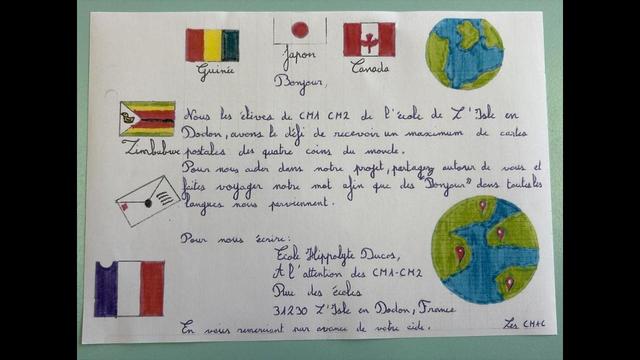 Guinée
Japon
Canada
Bonjour,
Nous les élèves de CM1 CM2 de l'école de L'Isle en
Dodon, avons le défi de recevoir un maximum de cartes
Zimbabwe postales des quatre coins du monde.
Pour nous aider dans notre projet, partagez autour de vous et
faites voyager notre mot afin que des "Bonjour" dans toutes les
langues nous parviennent.
Pour nous écrire:
Ecole Hippolyte Ducos,
A l'attention des CM1-CM2
Rue des écoles
31230 L'Isle en Dodon, France
En vous remerciant par avance de votre aide.
Les CM1C